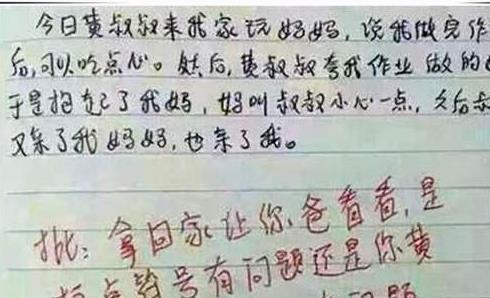 今日黄叔叔来我家玩妈妈，说我做完作
后，可以吃点心。然后，黄叔叔夸我作业做的
于是抱起了我妈，妈叫叔叔小心一点，之后
又亲了我妈妈，也亲了我。
批：拿回家让你爸看看，是
标点符号有问题还是你黄
问题